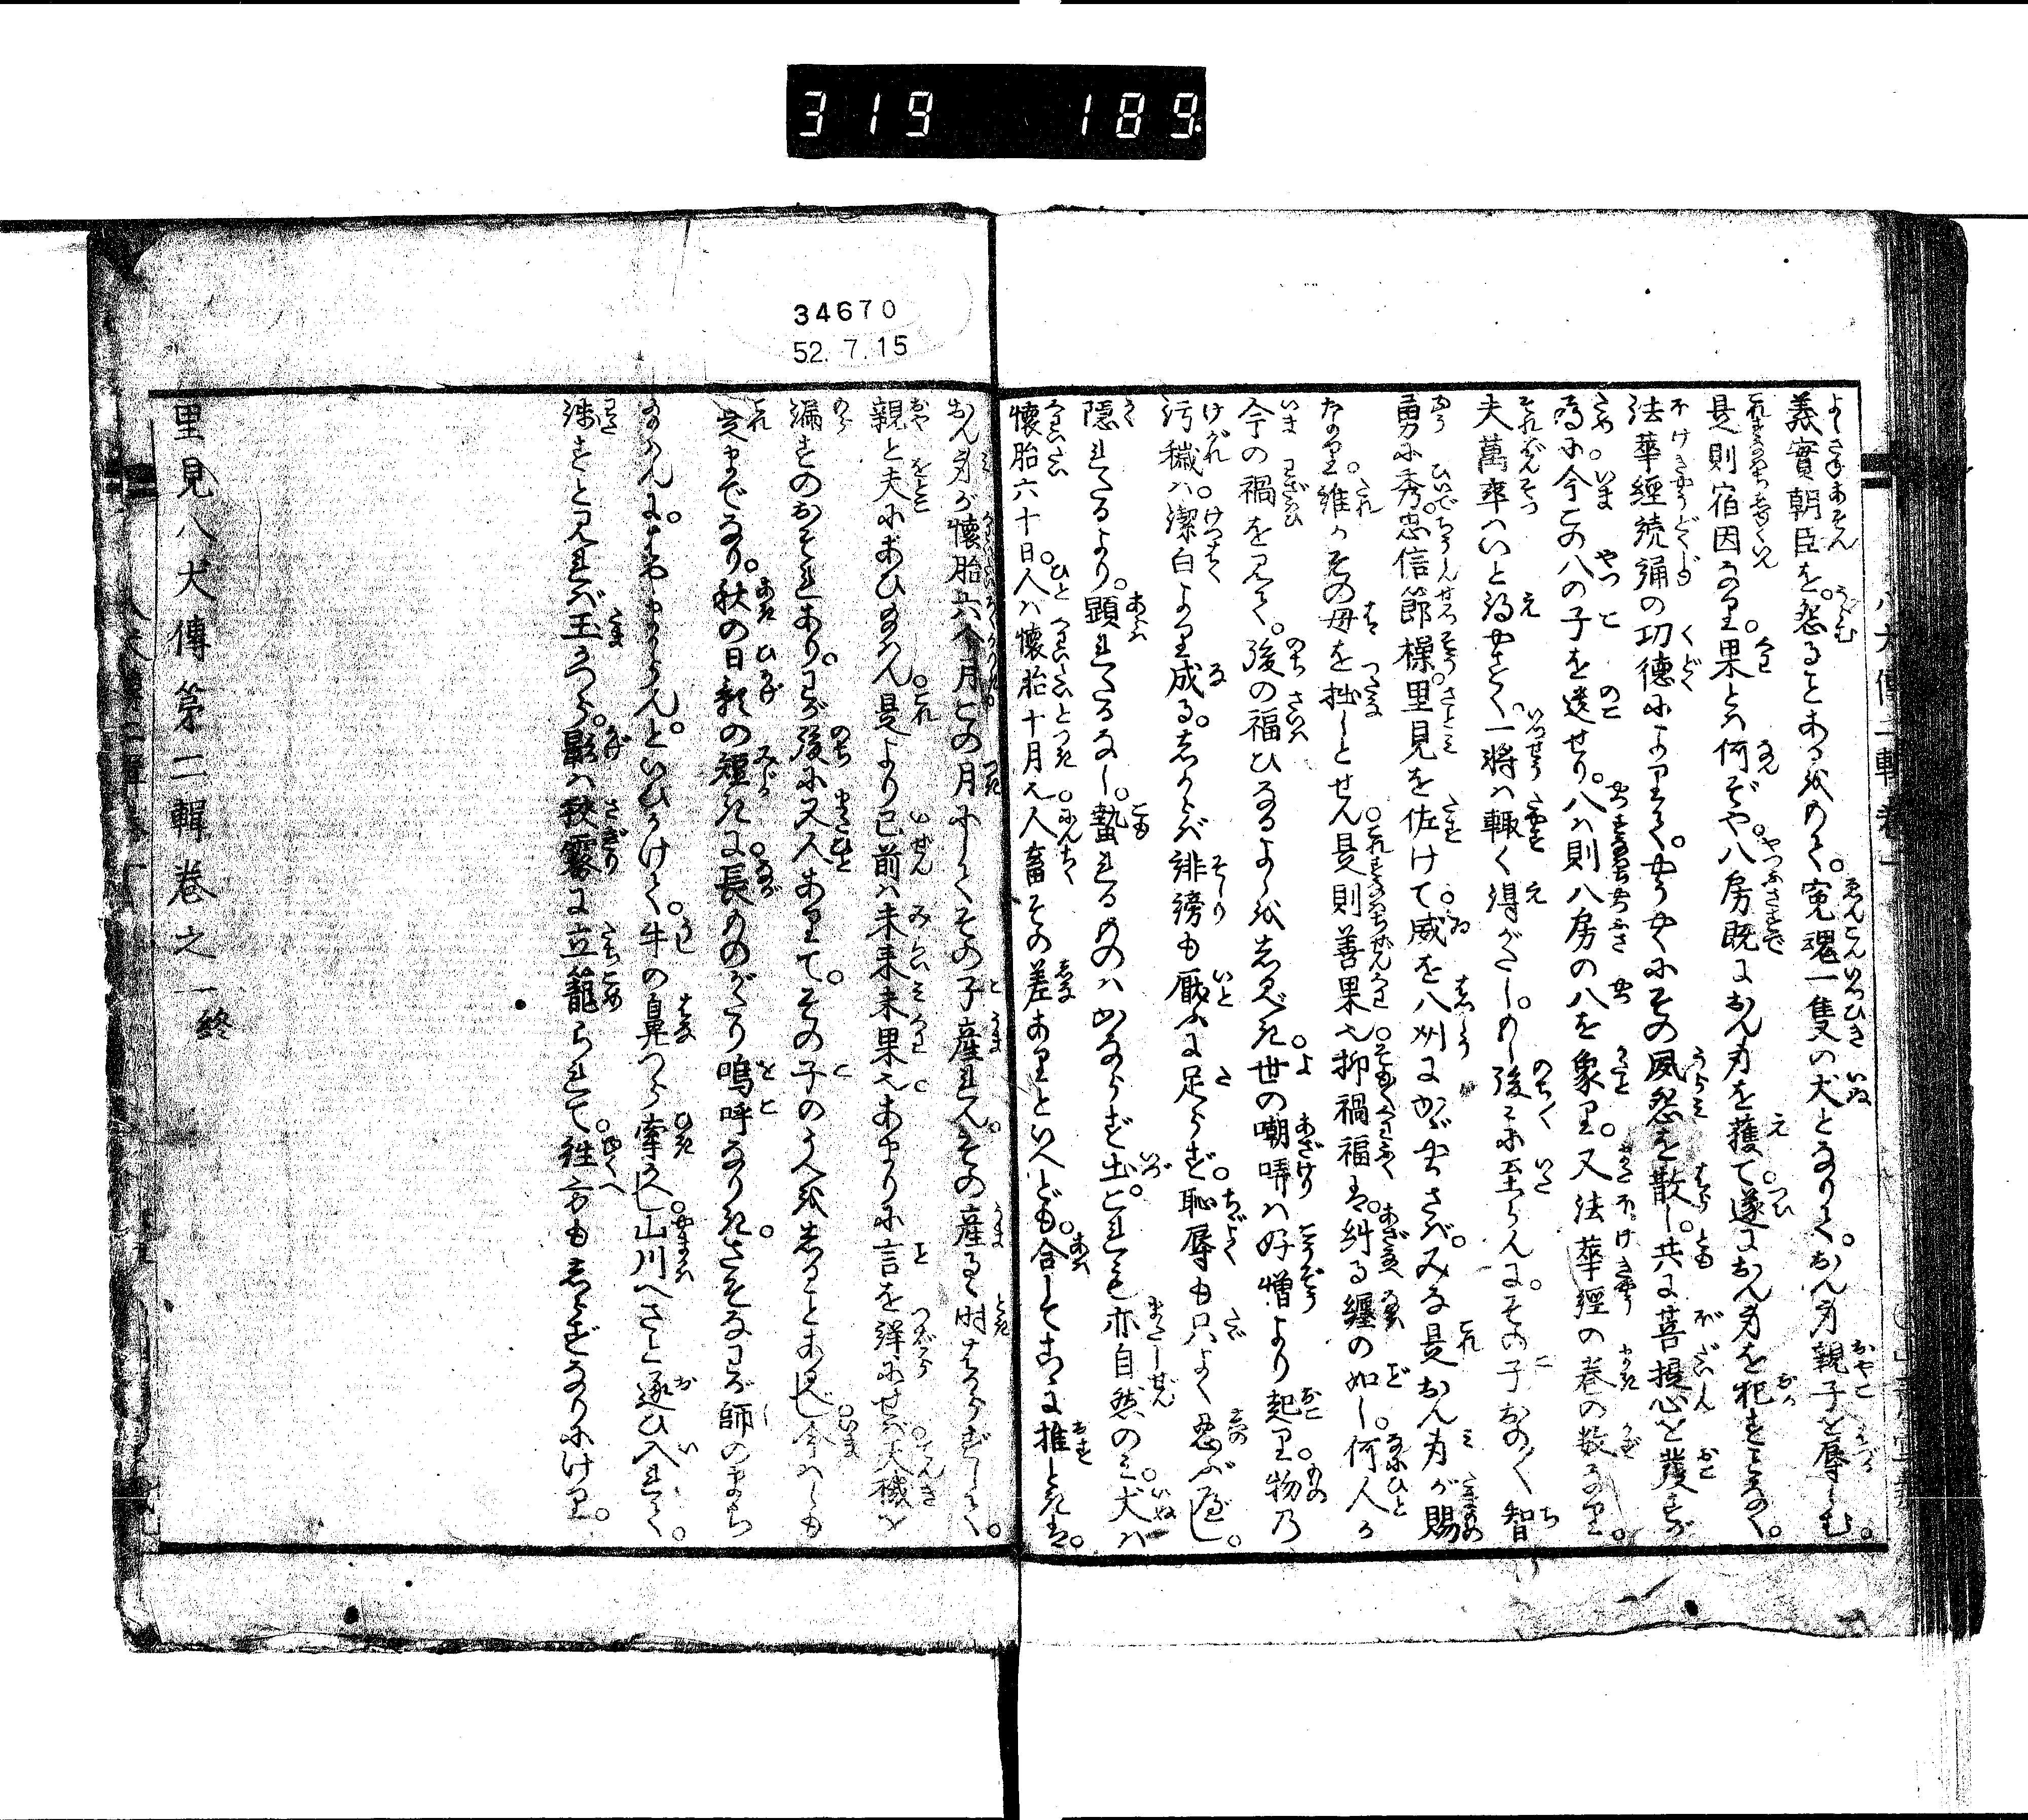 319 189
34670
52.7.15
義實朝臣を。怨ることあるをもて。冤魂一隻の犬となりて。おん身親子を辱しむ。
是則宿因なり。果とは何ぞや。八房既におん身を獲て。遂におん身を犯すことなく。
法華經読誦の功徳によりて。やうやくにその夙怨を散し。共に菩提心を發すが
為に。今この八の子を遺せり。八は則八房の八を象り。又法華經の巻の数なり。
夫萬卒はいと得やすく。一將は輙く得がたし。もし後々に至らんに。その子おの〱智
勇に秀。忠信節操。里見を佐けて。威を八州にかゞやさば。みな是おん身が賜
なり。誰かその母を拙しとせん。是則善果也。抑禍福は。糾る纏の如し。何人か
今の禍を見て。後の福ひなるよしをしるべき。世の嘲哢は好憎より起り。物の
汚穢は。潔白より成る。しからば誹謗も厭ふに足らず。恥辱も只よく忍ぶべし。
隠れたるより。顕れたるなし。蟄れるものはかならず出。これも亦自然のみ。犬は
懐胎六十日。人は懐胎十月也。人畜その差ありといへども。合してこゝに推ときは。
おん身が懐胎六个月。この月にしてその子産れん。その産るゝ時はからずして。
親と夫にあひ給はん。是より已前は未来未果也。あまりに言を詳にせば。天機を
漏すのおそれあり。わが後に又人ありて。その子のうへをしることあるべし。今はしも
是までなり。秋の日影の短きに。長ものがたり嗚呼なりき。さぞなわが師のまち
給はんに。まからん。といひかけて。牛の鼻づら牽かへし。山川へさと逐ひ入れて。
渉すと見れば玉かつら。影は秋霧に立籠られて。往方もしらずなりにけり。
里見八犬傳第二輯巻之一終